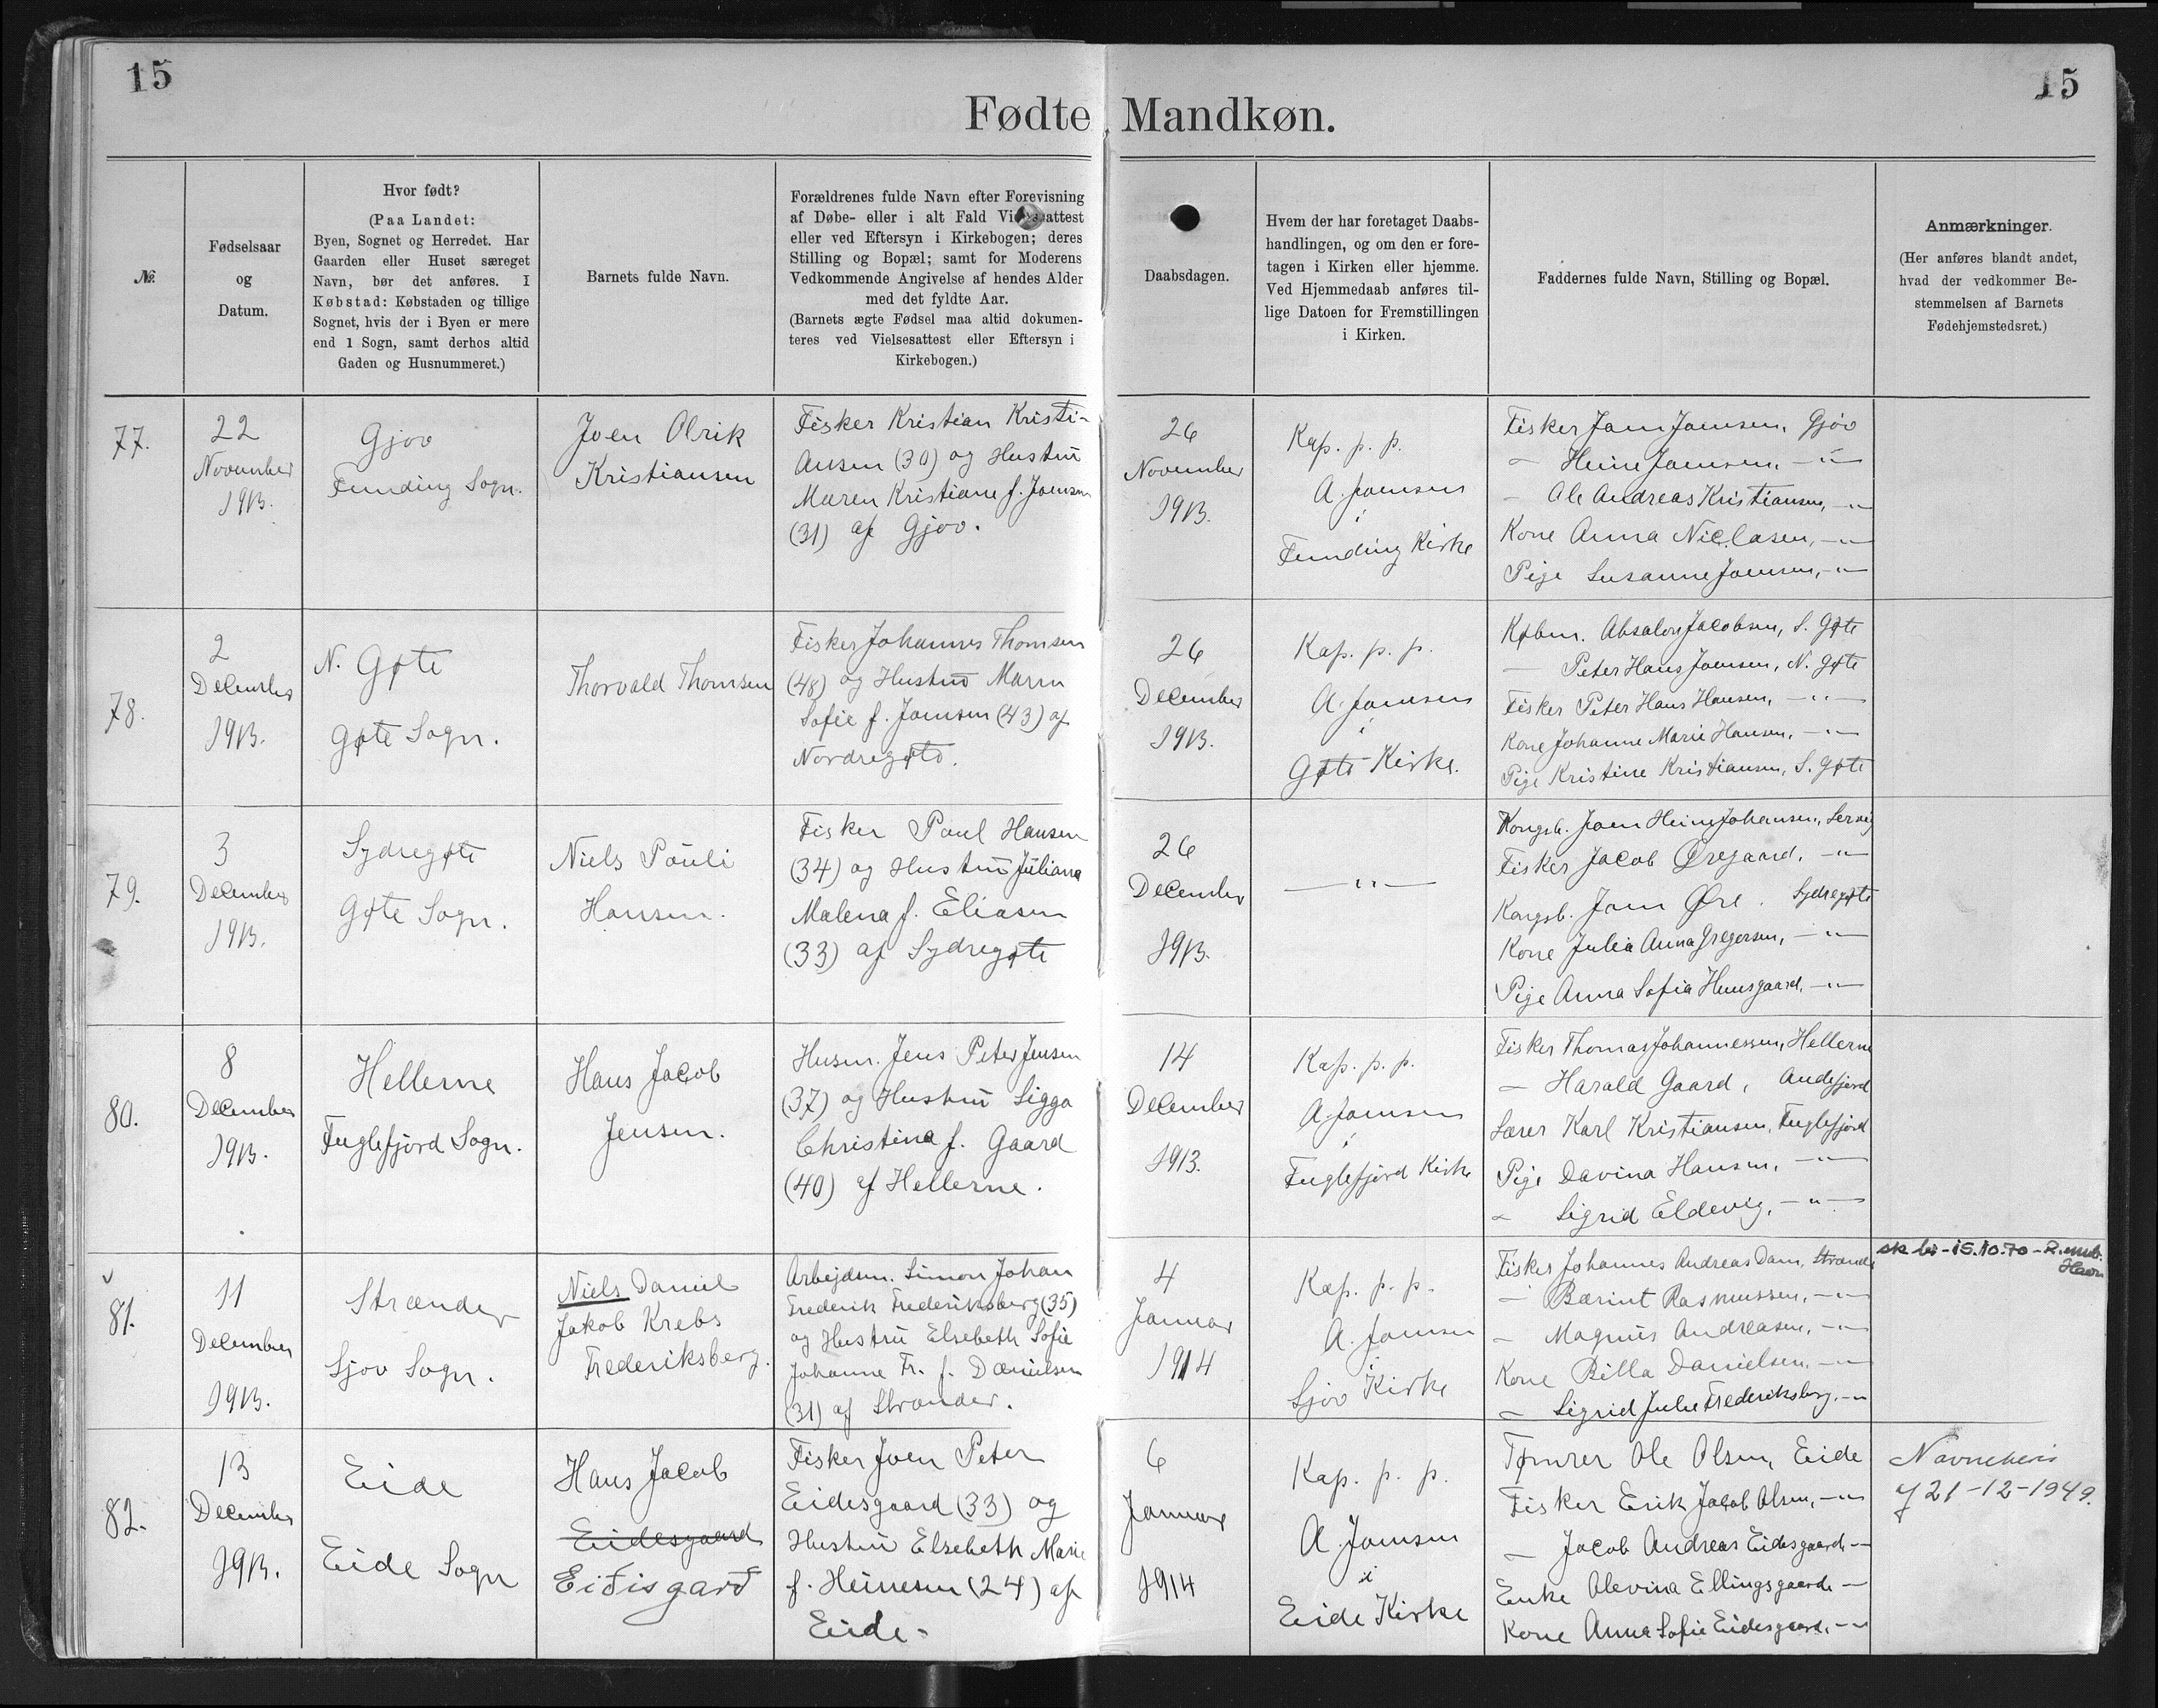 15
15
Fødte Mandkøn.
№.
Fødselsaar
og
Datum.
Hvor født?
(Paa Landet:
Byen, Sognet og Herredet. Har
Gaarden eller Huset særeget
Navn, bør det anføres. I
Købstad: Købstaden og tillige
Sognet, hvis der i Byen er mere
end 1 Sogn, samt derhos altid
Gaden og Husnummeret.)
Barnets fulde Navn.
Forældrenes fulde Navn efter Forevisning
af Døbe- eller i alt Fald Vielsesattest
eller ved Eftersyn i Kirkebogen; deres
Stilling og Bopæl; samt for Moderens
Vedkommende Angivelse af hendes Alder
med det fyldte Aar.
(Barnets ægte Fødsel maa altid dokumen-
teres ved Vielsesattest eller Eftersyn i
Kirkebogen.)
Daabsdagen.
Hvem der har foretaget Daabs-
handlingen, og om den er fore-
tagen i Kirken eller hjemme.
Ved Hjemmedaab anføres til-
lige Datoen for Fremstillingen
i Kirken.
Faddernes fulde Navn, Stilling og Bopæl.
Anmærkninger.
(Her anføres blandt andet,
hvad der vedkommer Be-
stemmelsen af Barnets
Fødehjemstedsret.)
77.
22
November
1913.
Gjov
Funding Sogn.
Joen Olrik
Kristiansen
Fisker Kristian Kristi-
ansen (30) og Hustru
Maren Kristiane f. Joensen
(31) af Gjov.
26
November
1913.
Kap. p. p.
A. Joensen
i
Funding Kirke
Fisker Joen Joensen, Gjóv
— Heine Joensen, — " —
— Ole Andreas Kristiansen, — " —
Kone Anna Niclasen, — " —
Pige Susanne Joensen, — " —
78.
2
December
1913.
N. Gøte
Gøte Sogn.
Thorvald Thomsen
Fisker Johannes Thomsen
(48) og Hustru Maren
Sofie f. Joensen (43) af
Nordregøte.
26
December
1913.
Kap. p. p.
A. Joensen
i
Gøte Kirke.
Købm. Absalon Jacobsen, S. Gøte
— Peter Hans Joensen, N. Gøte
Fisker Peter Hans Hansen, — " —
Kone Johanne Marie Hansen, — " —
Pige Kristine Kristiansen, S. Gøte
79.
3
December
1913.
Sydregøte
Gøte Sogn.
Niels Pouli
Hansen.
Fisker Poul Hansen
(34) og Hustru Juliana
Malena f. Eliasen
(33) af Sydregøte
26
December
1913.
— " —
Kongsb. Joen Heine Johansen, Lervig
Fisker Jacob Øregaard, — " —
Kongsb. Joen Øre. Sydregøte
Kone Julia Anna Gregersen, — " —
Pige Anna Sofia Huusgaard, — " —
80.
8
December
1913.
Hellerne
Fuglefjord Sogn.
Hans Jacob
Jensen.
Husm. Jens Peter Jensen
(37) og Hustru Sigga
Christina f. Gaard
(40) af Hellerne.
14
December
1913.
Kap. p. p.
A. Joensen
i
Fuglefjord Kirke
Fisker Thomas Johannessen, Hellerne
— Harald Gaard, Andefjord
Lærer Karl Kristiansen, Fuglefjord
Pige Davina Hansen, — " —
— Sigrid Eldevig, — " —
81.
11
December
1913.
Strænder
Sjov Sogn.
Niels Daniel
Jakob Krebs
Frederiksberg.
Arbejdsm. Simon Johan
Frederik Frederiksberg (35)
og Hustru Elsebeth Sofie
Johanne Fr. f. Danielsen
(31) af Strænder.
4
Januar
1914
Kap. p. p.
A. Joensen
i
Sjov Kirke
Fisker Johannes Andreas Dam, Strænder
— Bærint Rasmussen, — " —
— Magnus Andreasen, — " —
Kone Billa Danielsen, — " —
— Sigrid Julie Frederiksberg, — " —
15.10.70
82.
13
December
1913.
Eide
Eide Sogn
Hans Jacob
Eidesgaard
Eiðisgarð
Fisker Joen Peter
Eidesgaard (33) og
Hustru Elsebeth Marie
f. Heinesen (24) af
Eide.
6
Januar
1914
Kap. p. p.
A. Joensen
i
Eide Kirke
Tømrer Ole Olsen, Eide
Fisker Erik Jacob Olsen, — " —
— Jacob Andreas Eidesgaard, —
Enke Olevina Ellingsgaard, —
Kone Anna Sofie Eidesgaard, — " —
Navnebevis
af 21-12-1949.